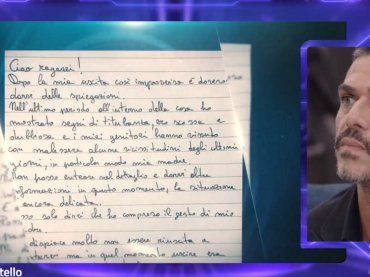 Ciao ragazzi!
Dopo la mia uscita così improvvisa è doveroso
darvi delle spiegazioni.
Nell'ultimo periodo all'interno della casa ho
mostrato segni di titubanza, ero scossa e
dubbiosa e i miei genitori hanno vissuto
con malessere alcune vicissitudini degli ultimi
giorni, in particolar modo mia madre.
Non posso entrare nel dettaglio e darvi altre
informazioni in questo momento, la situazione
ancora delicata.
sso solo dirvi che ho compreso il gesto di mia
dre.
dispiace molto non essere riuscita a
ma in quel momento uscire era
tello